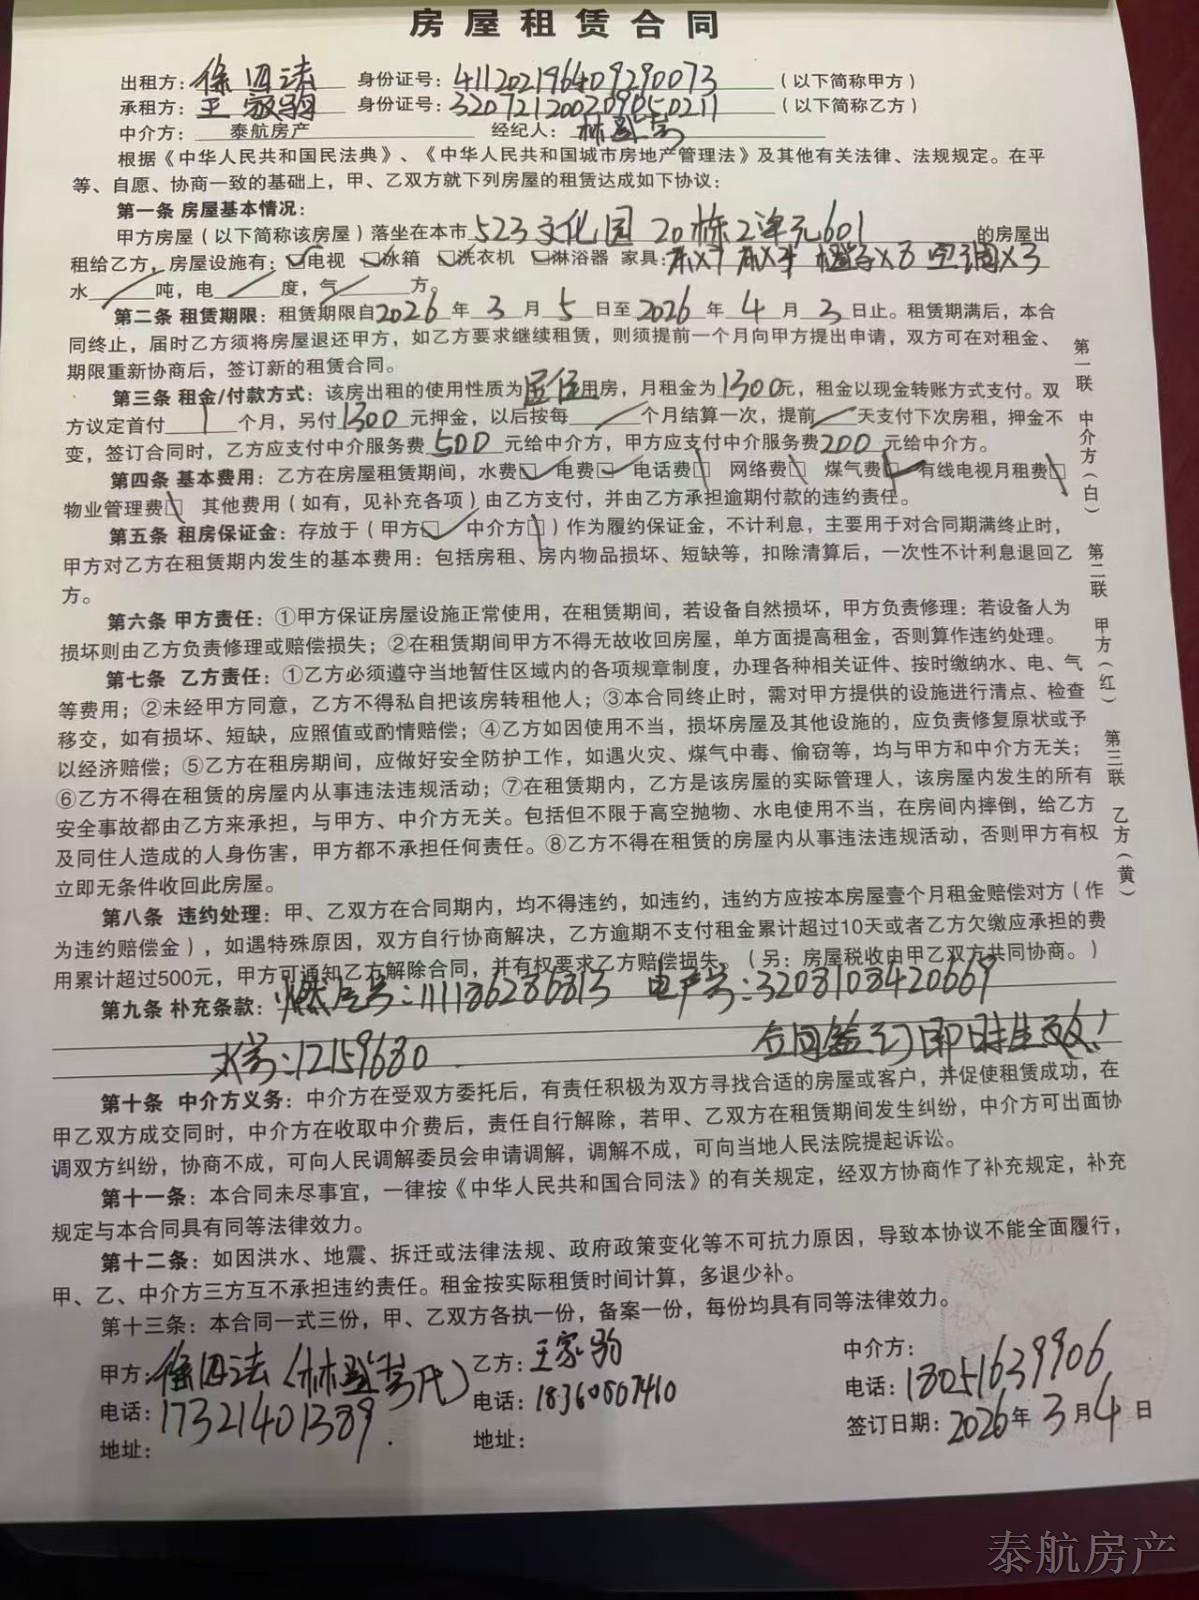 房屋租赁合同
出租方：徐四法 身份证号：411202196409290073（以下简称甲方）
承租方：王家驹 身份证号：320721200209050211（以下简称乙方）
中介方：泰航房产 经纪人：林
根据《中华人民共和国民法典》、《中华人民共和国城市房地产管理法》及其他有关法律、法规规定。在平
等、自愿、协商一致的基础上，甲、乙双方就下列房屋的租赁达成如下协议：
第一条 房屋基本情况：
甲方房屋（以下简称该房屋）落坐在本市523文化园20栋2单元601的房屋出
租给乙方，房屋设施有：☑电视 ☑冰箱 ☑洗衣机 ☑淋浴器 家具：空调x3
水 吨，电 度，气 方。
第二条 租赁期限：租赁期限自2026年3月5日至2026年4月3日止。租赁期满后，本合
同终止，届时乙方须将房屋退还甲方，如乙方要求继续租赁，则须提前一个月向甲方提出申请，双方可在对租金、
期限重新协商后，签订新的租赁合同。
第三条 租金/付款方式：该房出租的使用性质为居住用房，月租金为1300元，租金以现金转账方式支付。双
方议定首付1个月，另付1300元押金，以后按每 个月结算一次，提前 天支付下次房租，押金不
变，签订合同时，乙方应支付中介服务费500元给中介方，甲方应支付中介服务费200元给中介方。
第四条 基本费用：乙方在房屋租赁期间，水费☑ 电费☑ 电话费□ 网络费□ 煤气费☑ 有线电视月租费□
物业管理费□ 其他费用（如有，见补充各项）由乙方支付，并由乙方承担逾期付款的违约责任。
第五条 租房保证金：存放于（甲方☑ 中介方□）作为履约保证金，不计利息，主要用于对合同期满终止时，
甲方对乙方在租赁期内发生的基本费用：包括房租、房内物品损坏、短缺等，扣除清算后，一次性不计利息退回乙
方。
第六条 甲方责任：①甲方保证房屋设施正常使用，在租赁期间，若设备自然损坏，甲方负责修理；若设备人为
损坏则由乙方负责修理或赔偿损失；②在租赁期间甲方不得无故收回房屋，单方面提高租金，否则算作违约处理。
第七条 乙方责任：①乙方必须遵守当地暂住区域内的各项规章制度，办理各种相关证件、按时缴纳水、电、气
等费用；②未经甲方同意，乙方不得私自把该房转租他人；③本合同终止时，需对甲方提供的设施进行清点、检查
移交，如有损坏、短缺，应照值或酌情赔偿；④乙方如因使用不当，损坏房屋及其他设施的，应负责修复原状或予
以经济赔偿；⑤乙方在租房期间，应做好安全防护工作，如遇火灾、煤气中毒、偷窃等，均与甲方和中介方无关；
⑥乙方不得在租赁的房屋内从事违法违规活动；⑦在租赁期内，乙方是该房屋的实际管理人，该房屋内发生的所有
安全事故都由乙方来承担，与甲方、中介方无关。包括但不限于高空抛物、水电使用不当，在房间内摔倒，给乙方
及同住人造成的人身伤害，甲方都不承担任何责任。⑧乙方不得在租赁的房屋内从事违法违规活动，否则甲方有权
立即无条件收回此房屋。
第八条 违约处理：甲、乙双方在合同期内，均不得违约，如违约，违约方应按本房屋壹个月租金赔偿对方（作
为违约赔偿金），如遇特殊原因，双方自行协商解决，乙方逾期不支付租金累计超过10天或者乙方欠缴应承担的费
用累计超过500元，甲方可通知乙方解除合同，并有权要求乙方赔偿损失。（另：房屋税收由甲乙双方共同协商。）
第九条 补充条款：燃气号：111186286813 电户号：3203108420669
水号：12159680 合同签订即时生效！
第十条 中介方义务：中介方在受双方委托后，有责任积极为双方寻找合适的房屋或客户，并促使租赁成功，在
甲乙双方成交同时，中介方在收取中介费后，责任自行解除，若甲、乙双方在租赁期间发生纠纷，中介方可出面协
调双方纠纷，协商不成，可向人民调解委员会申请调解，调解不成，可向当地人民法院提起诉讼。
第十一条：本合同未尽事宜，一律按《中华人民共和国合同法》的有关规定，经双方协商作了补充规定，补充
规定与本合同具有同等法律效力。
第十二条：如因洪水、地震、拆迁或法律法规、政府政策变化等不可抗力原因，导致本协议不能全面履行，
甲、乙、中介方三方互不承担违约责任。租金按实际租赁时间计算，多退少补。
第十三条：本合同一式三份，甲、乙双方各执一份，备案一份，每份均具有同等法律效力。
甲方：徐四法（林 代） 乙方：王家驹 中介方：
电话：17321401389 电话：18360807410 电话：18051639906
地址： 地址： 签订日期：2026年3月4日
第一联 中介方（白） 第二联 甲方（红） 第三联 乙方（黄）
泰航房产